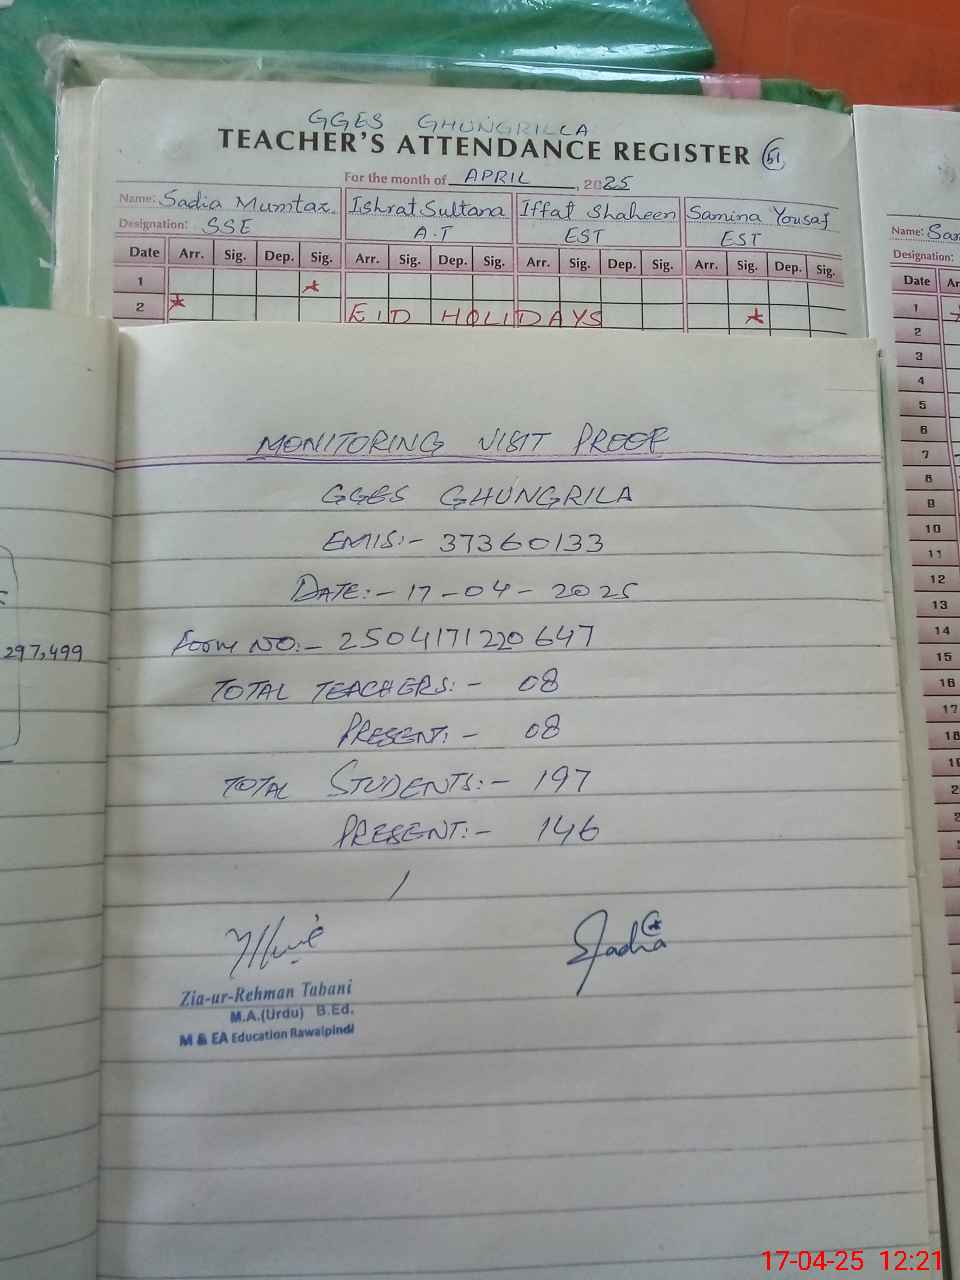 GGES GHUNGRILLA
TEACHER'S ATTENDANCE REGISTER 51
For the month of APRIL, 2025
Name: Sadia Mumtaz Ishrat Sultana Iffat Shaheen Samina Yousaf
Designation: SSE A.T EST EST
Date Arr. Sig. Dep. Sig. Arr. Sig. Dep. Sig. Arr. Sig. Dep. Sig. Arr. Sig. Dep. Sig.
1
2 EID HOLIDAYS
Name: San
Designation:
Date Ar
1
2
3
4
5
6
7
8
9
10
11
12
13
14
15
16
17
18
297,499
MONITORING VISIT PROOF
GGES GHUNGRILA
EMIS:- 37360133
DATE:- 17-04-2025
Form NO:- 2504171220647
TOTAL TEACHERS:- 08
PRESENT:- 08
TOTAL STUDENTS:- 197
PRESENT:- 146
Sadia
Zia-ur-Rehman Tabani
M.A.(Urdu) B.Ed.
M & EA Education Rawalpindi
17-04-25 12:21